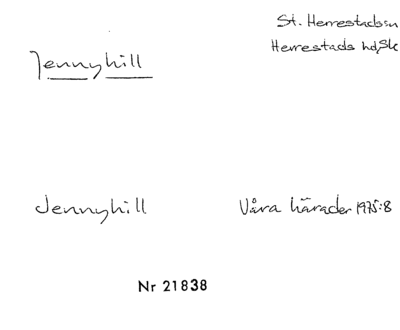 St. Herrestads sn
Jennyhill
Herrestads hd, Sk
Jennyhill Våra härader 1975:8
Nr 21838